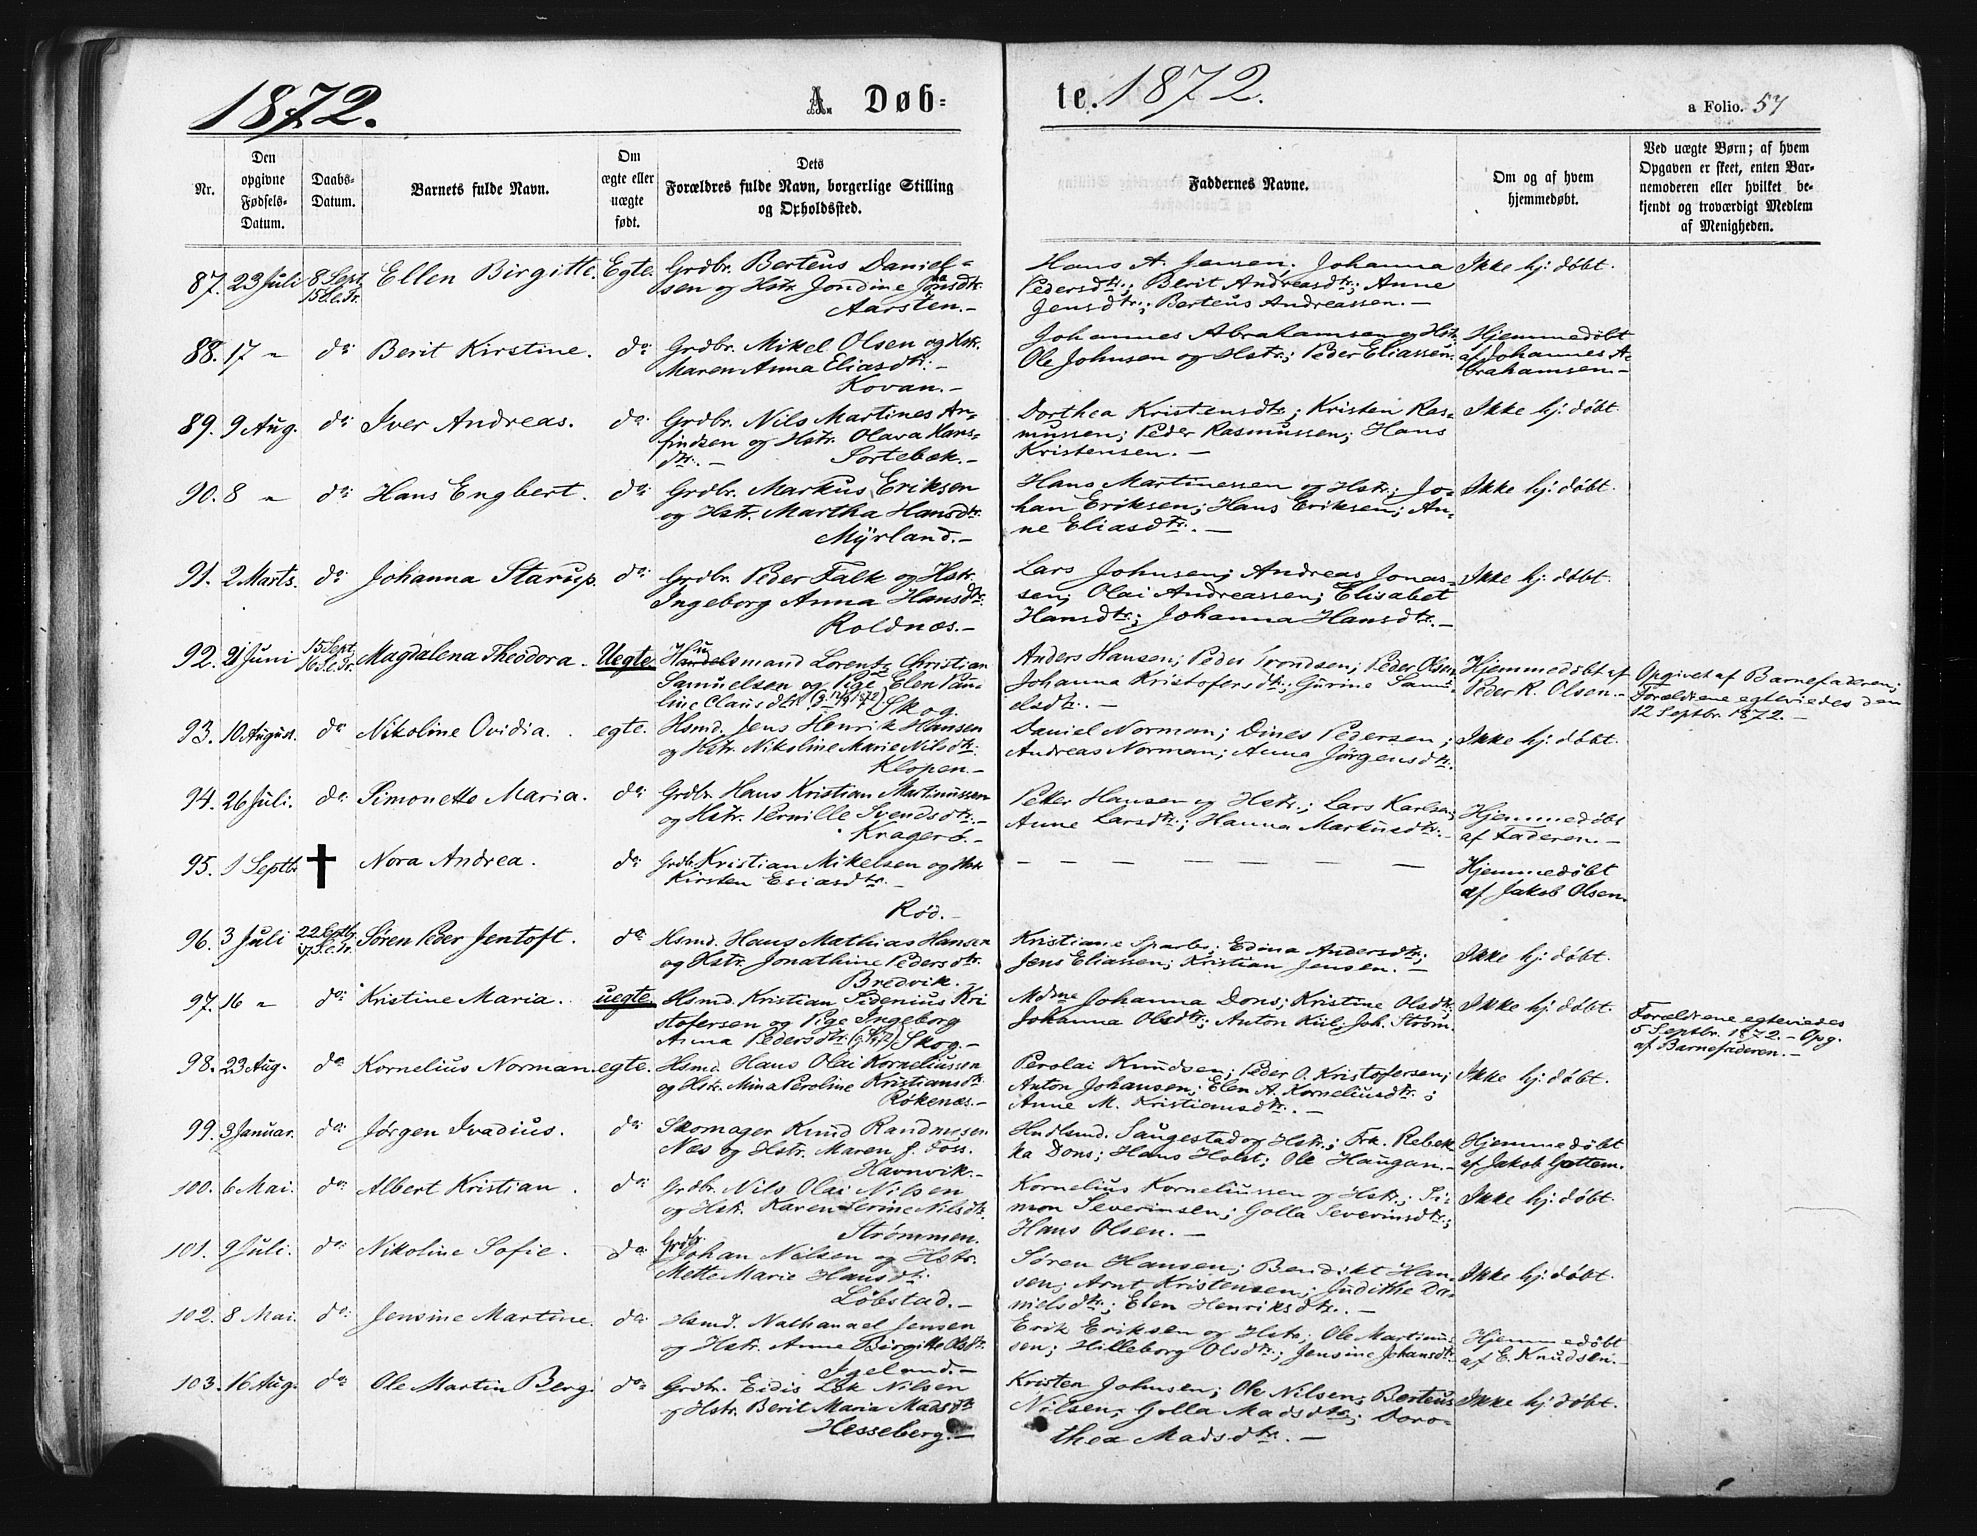 1872. A. Døb- te. 1872. a Folio. 57
Nr. | Den opgivne Fødsels-Datum. | Daabs-Datum. | Barnets fulde Navn. | Om ægte eller uægte født. | Dets Forældres fulde Navn, borgerlige Stilling og Opholdssted. | Faddernes Navne. | Om og af hvem hjemmedøbt. | Ved uægte Børn; af hvem Opgaven er skeet, enten Barnemoderen eller hvilket bekjendt og troværdigt Medlem af Menigheden.
87. 23 Juli 8 Sept. 15 S.e.Tr. Ellen Birgitte. Egte. Grdbr. Berteus Daniel-
sen og Hstr. Jondine Jonsdtr.
Aarsten.-
Hans A. Jensen; Johanna
Pedersdtr.; Berit Andreasdtr; Anne
Jensdtr.; Berteus Andreassen.-
Ikke hj: døbt.
88. 17 " do: Berit Kirstine. do: Grdbr. Mikel Olsen og Hstr.
Maren Anna Eliasdtr.-
Kovan.-
Johannes Abrahamsen og Hstr.
Ole Johnsen og Hstr.; Peder Eliassen.
Hjemmedøbt
af Johannes A-
brahamsen.-
89. 9 Aug. do: Iver Andreas. do: Grdbr. Nils Martines An-
findsen og Hstr. Olava Hans-
dtr.- Sortebæk.-
Dorthea Kristensdtr; Kristen Ras-
mussen; Peder Rasmussen; Hans
Kristensen.-
Ikke hj: døbt.
90. 8 " do: Hans Engbert. do: Grdbr. Markus Eriksen
og Hstr. Martha Hansdtr.
Myrland.-
Hans Martinessen og Hstr; Jo-
han Eriksen; Hans Eriksen; An-
ne Eliasdtr.-
Ikke hj: døbt.
91. 2 Marts. do: Johanna Starup. do: Grdbr. Peder Falk og Hstr.
Ingeborg Anna Hansdtr.
Roldnæs.-
Lars Johnsen; Andreas Jonas-
sen; Olai Andreassen; Elisabet
Hansdtr; Johanna Hansdtr.-
Ikke hj: døbt.
92. 21 Juni 15 Sept. 16 S.e.Tr. Magdalena Theodora. Uegte. Lorentz Christian
Samuelsen og Pige Elen Pau-
line Clausdtr. (g. 12/9 1872) Skog.
Anders Hansen; Peder Trondsen; Peder Olsen
Johanna Kristofersdtr; Gurine Samu-
elsdtr.-
Hjemmedøbt af
Peder K. Olsen.-
Opgivet af Barnefaderen;
Forældrene egteviedes den
12 Septbr. 1872.-
93. 10 August. do Nikoline Ovidia. egte. Hsmd. Jens Henrik Hansen
og Hstr. Nikoline Marie Nilsdtr.
Klopen.-
Daniel Norman; Dines Pedersen;
Andreas Norman; Anna Jörgensdtr.
Ikke hj: døbt.
94. 26 Juli. do: Simonette Maria. do: Grdbr. Hans Kristian Martinussen
og Hstr. Pernille Svendsdtr.-
Kragerö.-
Petter Hansen og Hstr.; Lars Karlsen;
Anne Larsdtr; Hanna Markusdtr.-
Hjemmedøbt
af Faderen.-
95. 1 Septbr ✝ Nora Andrea. do: Grdbr. Kristian Mikelsen og Hstr.
Kirsten Esiasdtr.-
Rød.-
- - - - - - - - -
Hjemmedøbt
af Jakob Olsen.
96. 3 Juli 22 Septbr. 17 S.e.Tr. Søren Peder Jentoft. do: Hsmd. Hans Mathias Hansen
og Hstr. Jonathine Pedersdtr.
Bredvik.-
Kristiane Sparbo; Edina Andersdtr;
Jens Eliassen; Kristian Jensen.-
Ikke hj: døbt.
97. 16 " do: Kristine Maria. uegte. Hsmd. Kristian Sidenius Kri
stofersen og Pige Ingeborg
Anna Pedersdtr. Skog.-
Mdme Johanna Dons; Kristine Olsdtr;
Johanna Olsdtr; Anton Kiil; Joh. Strøm.
Ikke hj: døbt.
Forældrene egteviedes
5 Septbr. 1872.- Opg.
af Barnefaderen.-
98. 23 Aug. do: Kornelius Norman. egte. Hsmd. Hans Olai Korneliussen
og Hstr. Mina Peroline Kristiansdtr.
Røkenæs.-
Perolai Knudsen; Peder O. Kristofersen;
Anton Johansen; Elen A. Korneliusdtr.;
Anne M. Kristiansdtr.-
Ikke hj: døbt.
99. 3 Januar. do: Jørgen Ivadius. do: Skomager Knud Randnusen
Næs og Hstr. Maren J. Foss.
Havnvik.-
Hndlsmd. Saugestad og Hstr.; Frk. Rebek
ka Dons; Hans Holst; Ole Haugan.-
Hjemmedøbt
af Jakob Gottem.
100. 6 Mai. do: Albert Kristian. do: Grdbr. Nils Olai Nilsen
og Hstr. Karen Serine Nilsdtr.
Strømmen.
Kornelius Korneliussen og Hstr.; Si-
mon Severinsen; Golla Severinsdtr;
Hans Olsen.-
Ikke hj: døbt.
101. 9 Juli. do: Nikoline Sofie. do: Grdbr. Johan Nilsen og Hstr.
Mette Marie Hansdtr.
Löbstad.-
Søren Hansen; Bendikt Han-
sen; Arnt Kristensen; Judithe Da-
nielsdtr; Elen Henriksdtr.-
Ikke hj: døbt.
102. 8 Mai. do: Jensine Martine. do: Hsmd. Nathanael Jensen
og Hstr. Anne Birgitte Olsdtr.
Igeland.-
Erik Eriksen og Hstr; Ole Martinus-
sen; Hilleborg Olsdtr; Jensine Johansdtr.
Hjemmedøbt
af E. Knudsen.-
103. 16 Aug. do: Ole Martin Berg. do: Grdbr. Eidis Nilsen
og Hstr. Berit Maria Madsdtr
Hesseberg.-
Kristen Johnsen; Ole Nilsen; Berteus
Nilsen; Golla Madsdtr; Doro-
thea Madsdtr.-
Ikke hj: døbt.